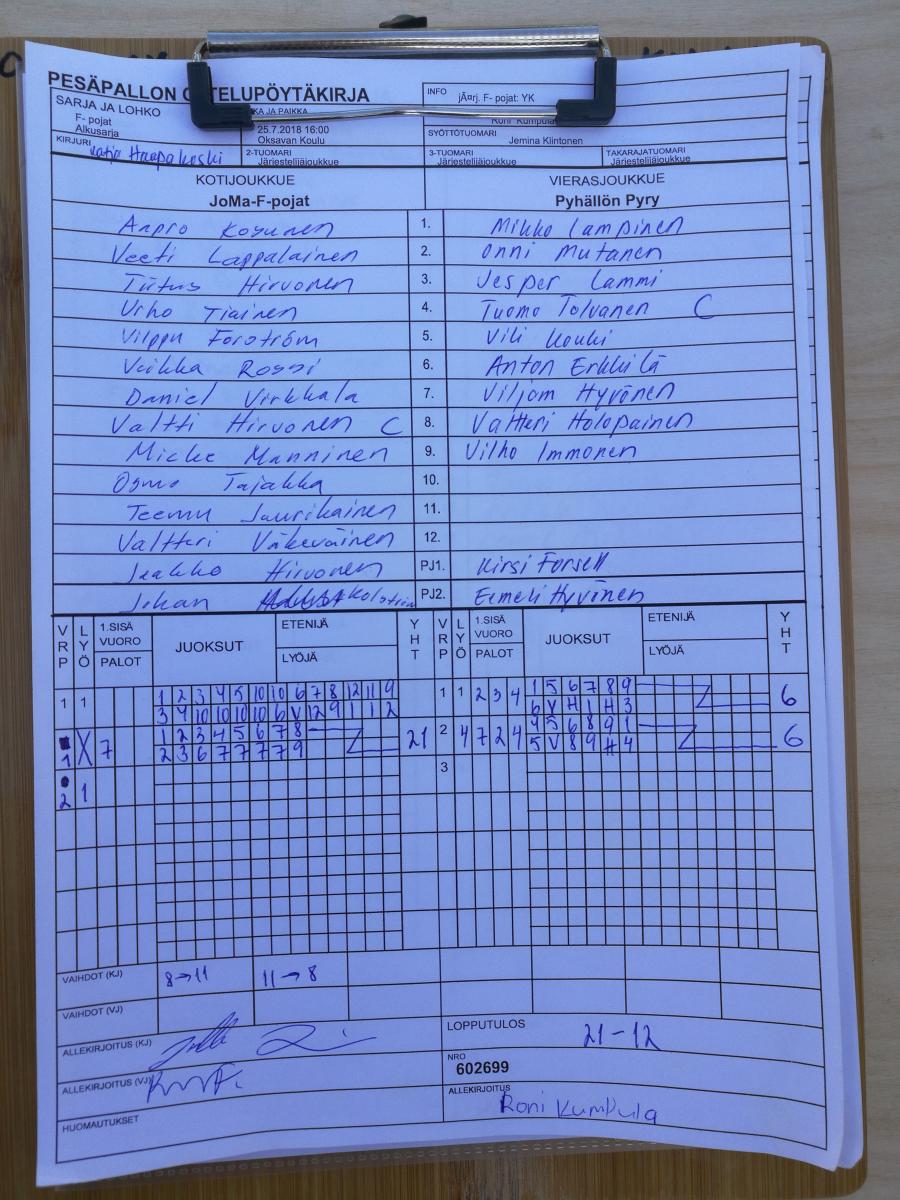 PESÄPALLON OTTELUPÖYTÄKIRJA
INFO jÃ¤rj. F- pojat: YK
SARJA JA LOHKO
F- pojat
Alkusarja
KA JA PAIKKA
25.7.2018 16:00
Oksavan Koulu
Roni Kumpula
SYÖTTÖTUOMARI
Jemina Kiintonen
KIRJURI Haapakoski
2-TUOMARI
Järjestelijäjoukkue
3-TUOMARI
Järjestelijäjoukkue
TAKARAJATUOMARI
Järjestelijäjoukkue
KOTIJOUKKUE VIERASJOUKKUE
JoMa-F-pojat Pyhällön Pyry
Kosunen 1. Mikko Lampinen
Veeti Lappalainen 2. Onni Mutanen
Tiitus Hirvonen 3. Jesper Lammi
Urho Tiainen 4. Tuomo Tolvanen C
Vilppu Forström 5. Vili Kouki
Veikka Rossi 6. Anton Erkkilä
Daniel Virkkala 7. Viljam Hyvönen
Valtti Hirvonen C 8. Valtteri Holopainen
Micke Manninen 9. Vilho Immonen
Osmo Tajakka 10.
Teemu Jaurikainen 11.
Valtteri Väkeväinen 12.
Jaakko Hirvonen PJ1. Kirsi Forsell
Johan PJ2. Eemeli Hyvönen
VRP LYÖ 1.SISÄ VUORO PALOT JUOKSUT ETENIJÄ LYÖJÄ YHT VRP LYÖ 1.SISÄ VUORO PALOT JUOKSUT ETENIJÄ LYÖJÄ YHT
1 1 1 2 3 4 5 10 10 6 7 8 12 11 9 1 1 2 3 4 1 5 6 7 8 9 6
3 4 10 10 10 10 6 V 12 9 1 1 2 6 V H 1 H 3
1 X 7 1 2 3 4 5 6 7 8 21 2 4 7 2 4 4 5 6 8 9 1 6
2 3 6 7 7 7 7 9 5 V 8 9 H 4
2 1 3
VAIHDOT (KJ) 8→11 11→8
VAIHDOT (VJ)
ALLEKIRJOITUS (KJ) LOPPUTULOS 21-12
ALLEKIRJOITUS (VJ) NRO
602699
HUOMAUTUKSET ALLEKIRJOITUS Roni Kumpula